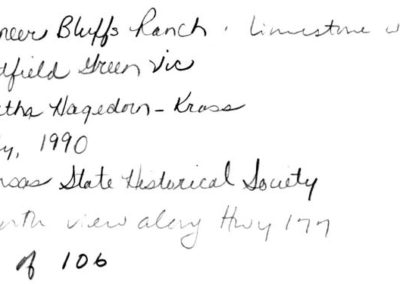 neer Bluffs Ranch · Limestone w
tfield Green Vic
tha Hagedorn-Krass
y, 1990
nsas State Historical Society
rth view along Hwy 177
of 106